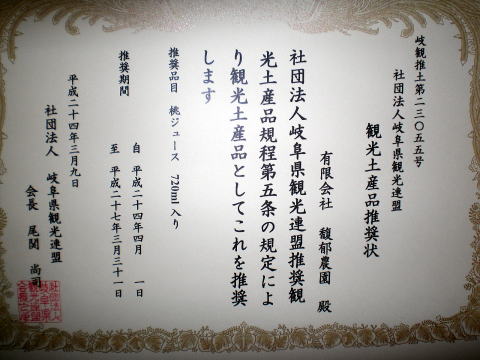 岐観推土第二三〇五五号
社団法人岐阜県観光連盟
観光土産品推奨状
有限会社 馥郁農園 殿
社団法人岐阜県観光連盟推奨観
光土産品規程第五条の規定によ
り観光土産品としてこれを推奨
します
推奨品目 桃ジュース 720ml 入り
推奨期間 自 平成二十四年四月 一日
至 平成二十七年三月三十一日
平成二十四年三月九日
社団法人 岐阜県観光連盟
会長 尾関 尚司
社団法人
岐阜県
観光連盟
会長之印